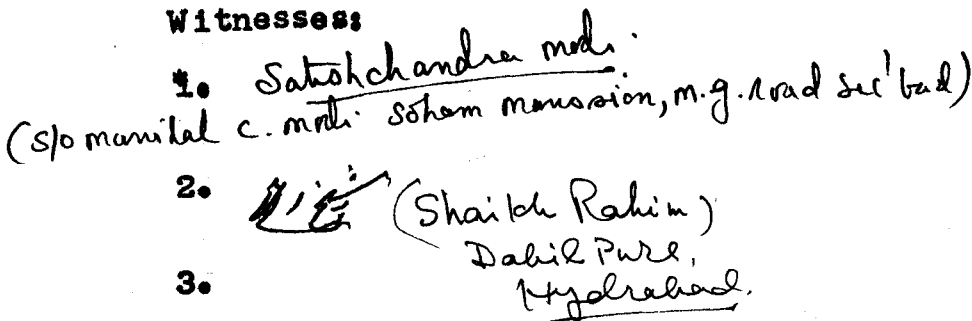 Witnesses:
1. Satishchandra modi.
(s/o manilal c. modi. Soham manssion, m.g. road sec'bad)
2. (Shaikh Rahim)
Dabil Pura,
Hydrabad.
3.